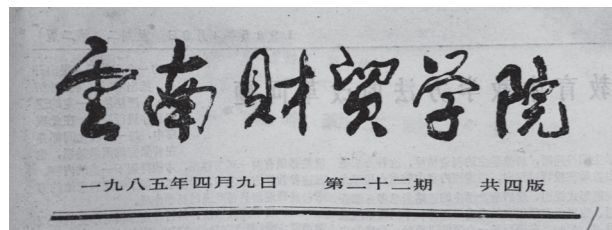 雲南財贸学院
一九八五年四月九日 第二十二期 共四版